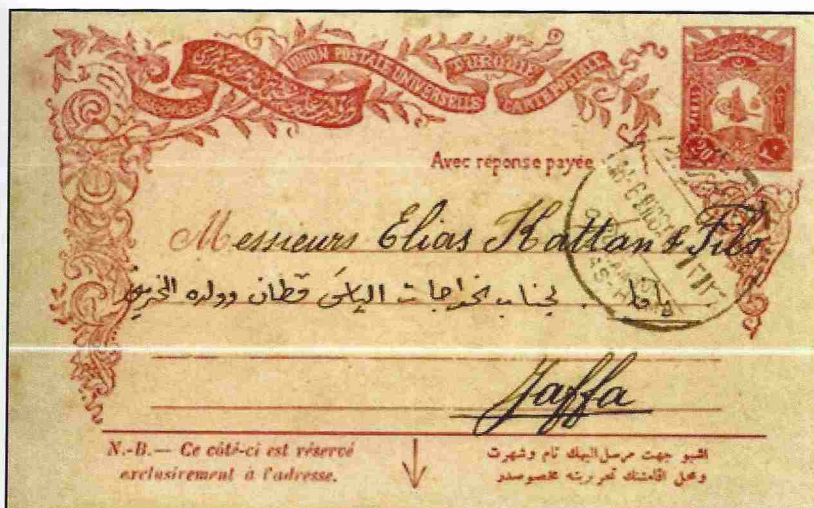 UNION POSTALE UNIVERSELLE
TURQUIE
CARTE POSTALE
20
Avec réponse payée
Messieurs Elias Kattan & Fils
يافا . لجناب الخواجات الياس قطان وولده
Jaffa
N.-B.— Ce côté-ci est réservé
exclusivement à l'adresse.
اشبو جهت مرسل اليهك نام وشهرت
ومحل اقامتنك تحريرينه مخصوصدر